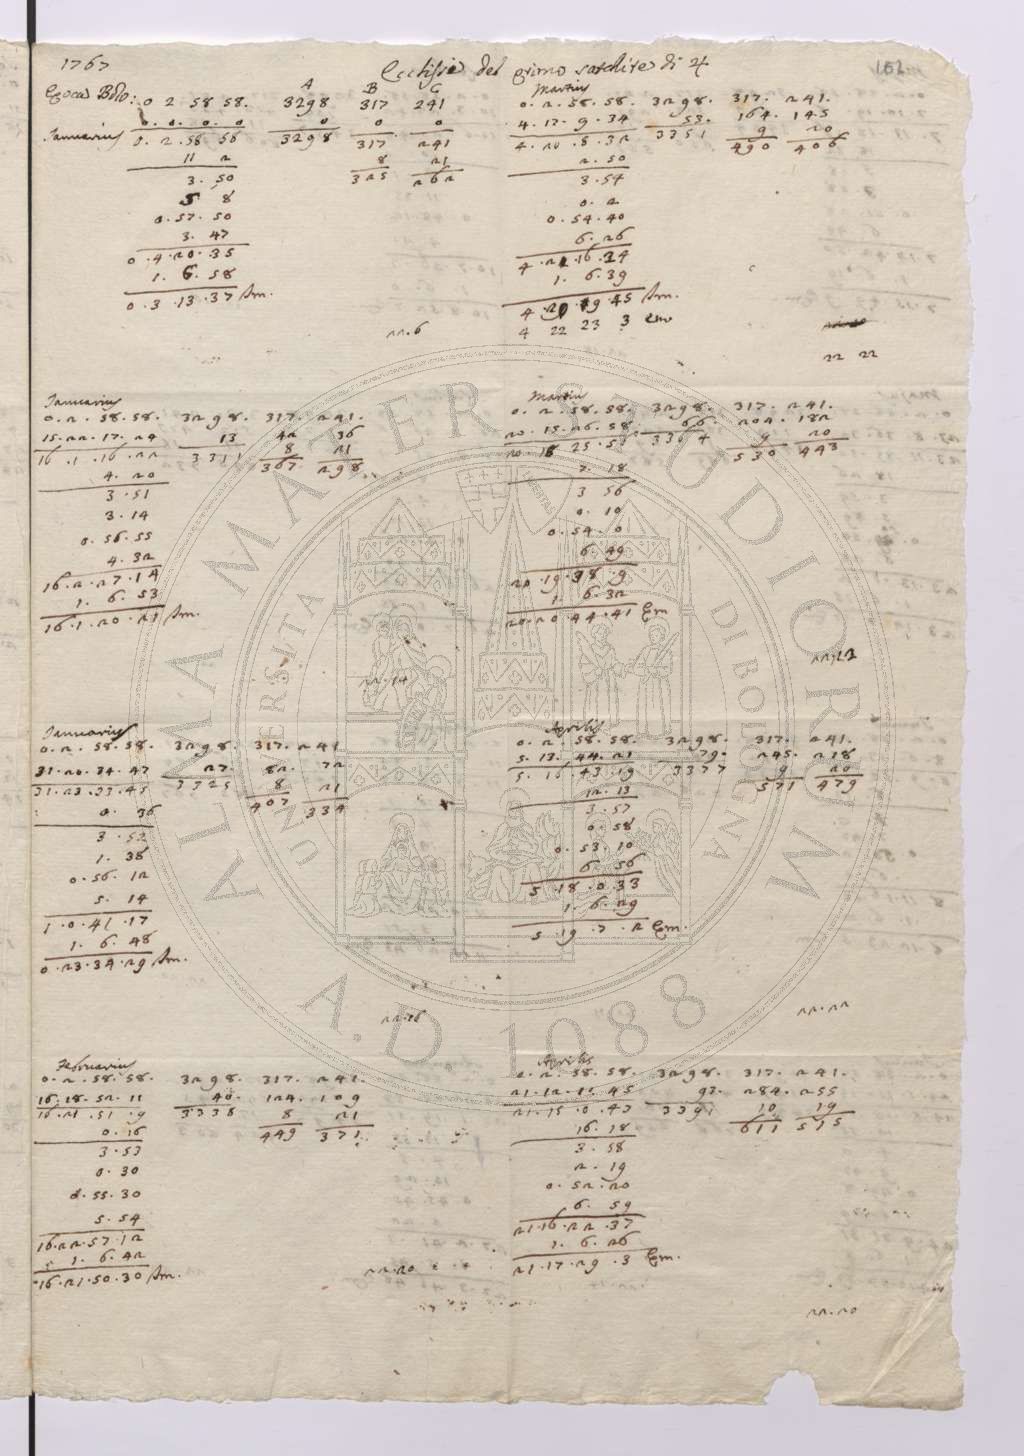 1767
Ecclissi del primo satellite di ♃
162
A B C
Epoca Bono: 0 2 58 58. 3298 317 241
0. 0. 0. 0 0 0 0
Januarius 0. 2. 58 58 3298 317 241
11 2 8 21
3. 50 325 262
5 8
0. 57. 50
3. 47
0. 4. 20. 35
1. 6. 58
0. 3. 13. 37 Im.
22. 6
Martius
0. 2. 58. 58. 3298. 317. 241.
4. 17. 9. 34 53. 164. 145
4. 20. 8. 32 3351 9 20
2. 50 490 406
3. 54
0. 2
0. 54. 40
6. 26
4. 21. 16. 24
1. 6. 39
4 22 23 3 Em
22 22
Januarius
0. 2. 58. 58. 3298. 317. 241.
15. 22. 17. 24 13 42 36
16. 1. 16. 22 3311 8 21
4. 20 367 298
3. 51
3. 14
0. 56. 55
4. 32
16. 2. 27. 14
1. 6. 53
16. 1. 20. 21 Im.
22. 14
Martius
0. 2. 58. 58. 3298. 317. 241.
20. 15. 26. 58 66. 204. 182
20. 18 25. 56 3364 9 20
7. 18 530 443
3 56
0. 10
0. 54. 0
6. 49
20. 19. 38. 9
1. 6. 32
20. 20 44. 41 Em
Januarius
0. 2. 58. 58. 3298. 317. 241
31. 20. 34. 47 27. 82. 72
31. 23. 33. 45 3325 8 21
0. 36 407 334
3. 52
1. 38
0. 56. 12
5. 14
1. 0. 41. 17
1. 6. 48
0. 23. 34. 29 Im.
22. 16
Aprilis
0. 2. 58. 58. 3298. 317. 241.
5. 13. 44. 21 79. 245. 218
5. 16. 43. 19 3377 9 20
12. 13 571 479
3. 57
0. 58
0. 53. 10
6. 56
5. 18. 0. 33
1. 6. 29
5. 19. 7. 2 Em.
22. 22
Februarius
0. 2. 58. 58. 3298. 317. 241.
16. 18. 52. 11 40. 124. 109
16. 21. 51. 9 3338 8 21
0. 16 449 371
3. 53
0. 30
0. 55. 30
5. 54
16. 22. 57. 12
1. 6. 42
16. 21. 50. 30 Im.
22. 20
Aprilis
0. 2. 58. 58 3298. 317. 241.
21. 12. 1. 45 93. 284. 255
21. 15. 0. 43 3391 10 19
16. 18 611 515
3. 58
2. 19
0. 52. 20
6. 59
21. 16. 22. 37
1. 6. 26
21. 17. 29. 3 Em.
22. 20
ALMA MATER STUDIORUM
UNIVERSITÀ DI BOLOGNA
A.D. 1088